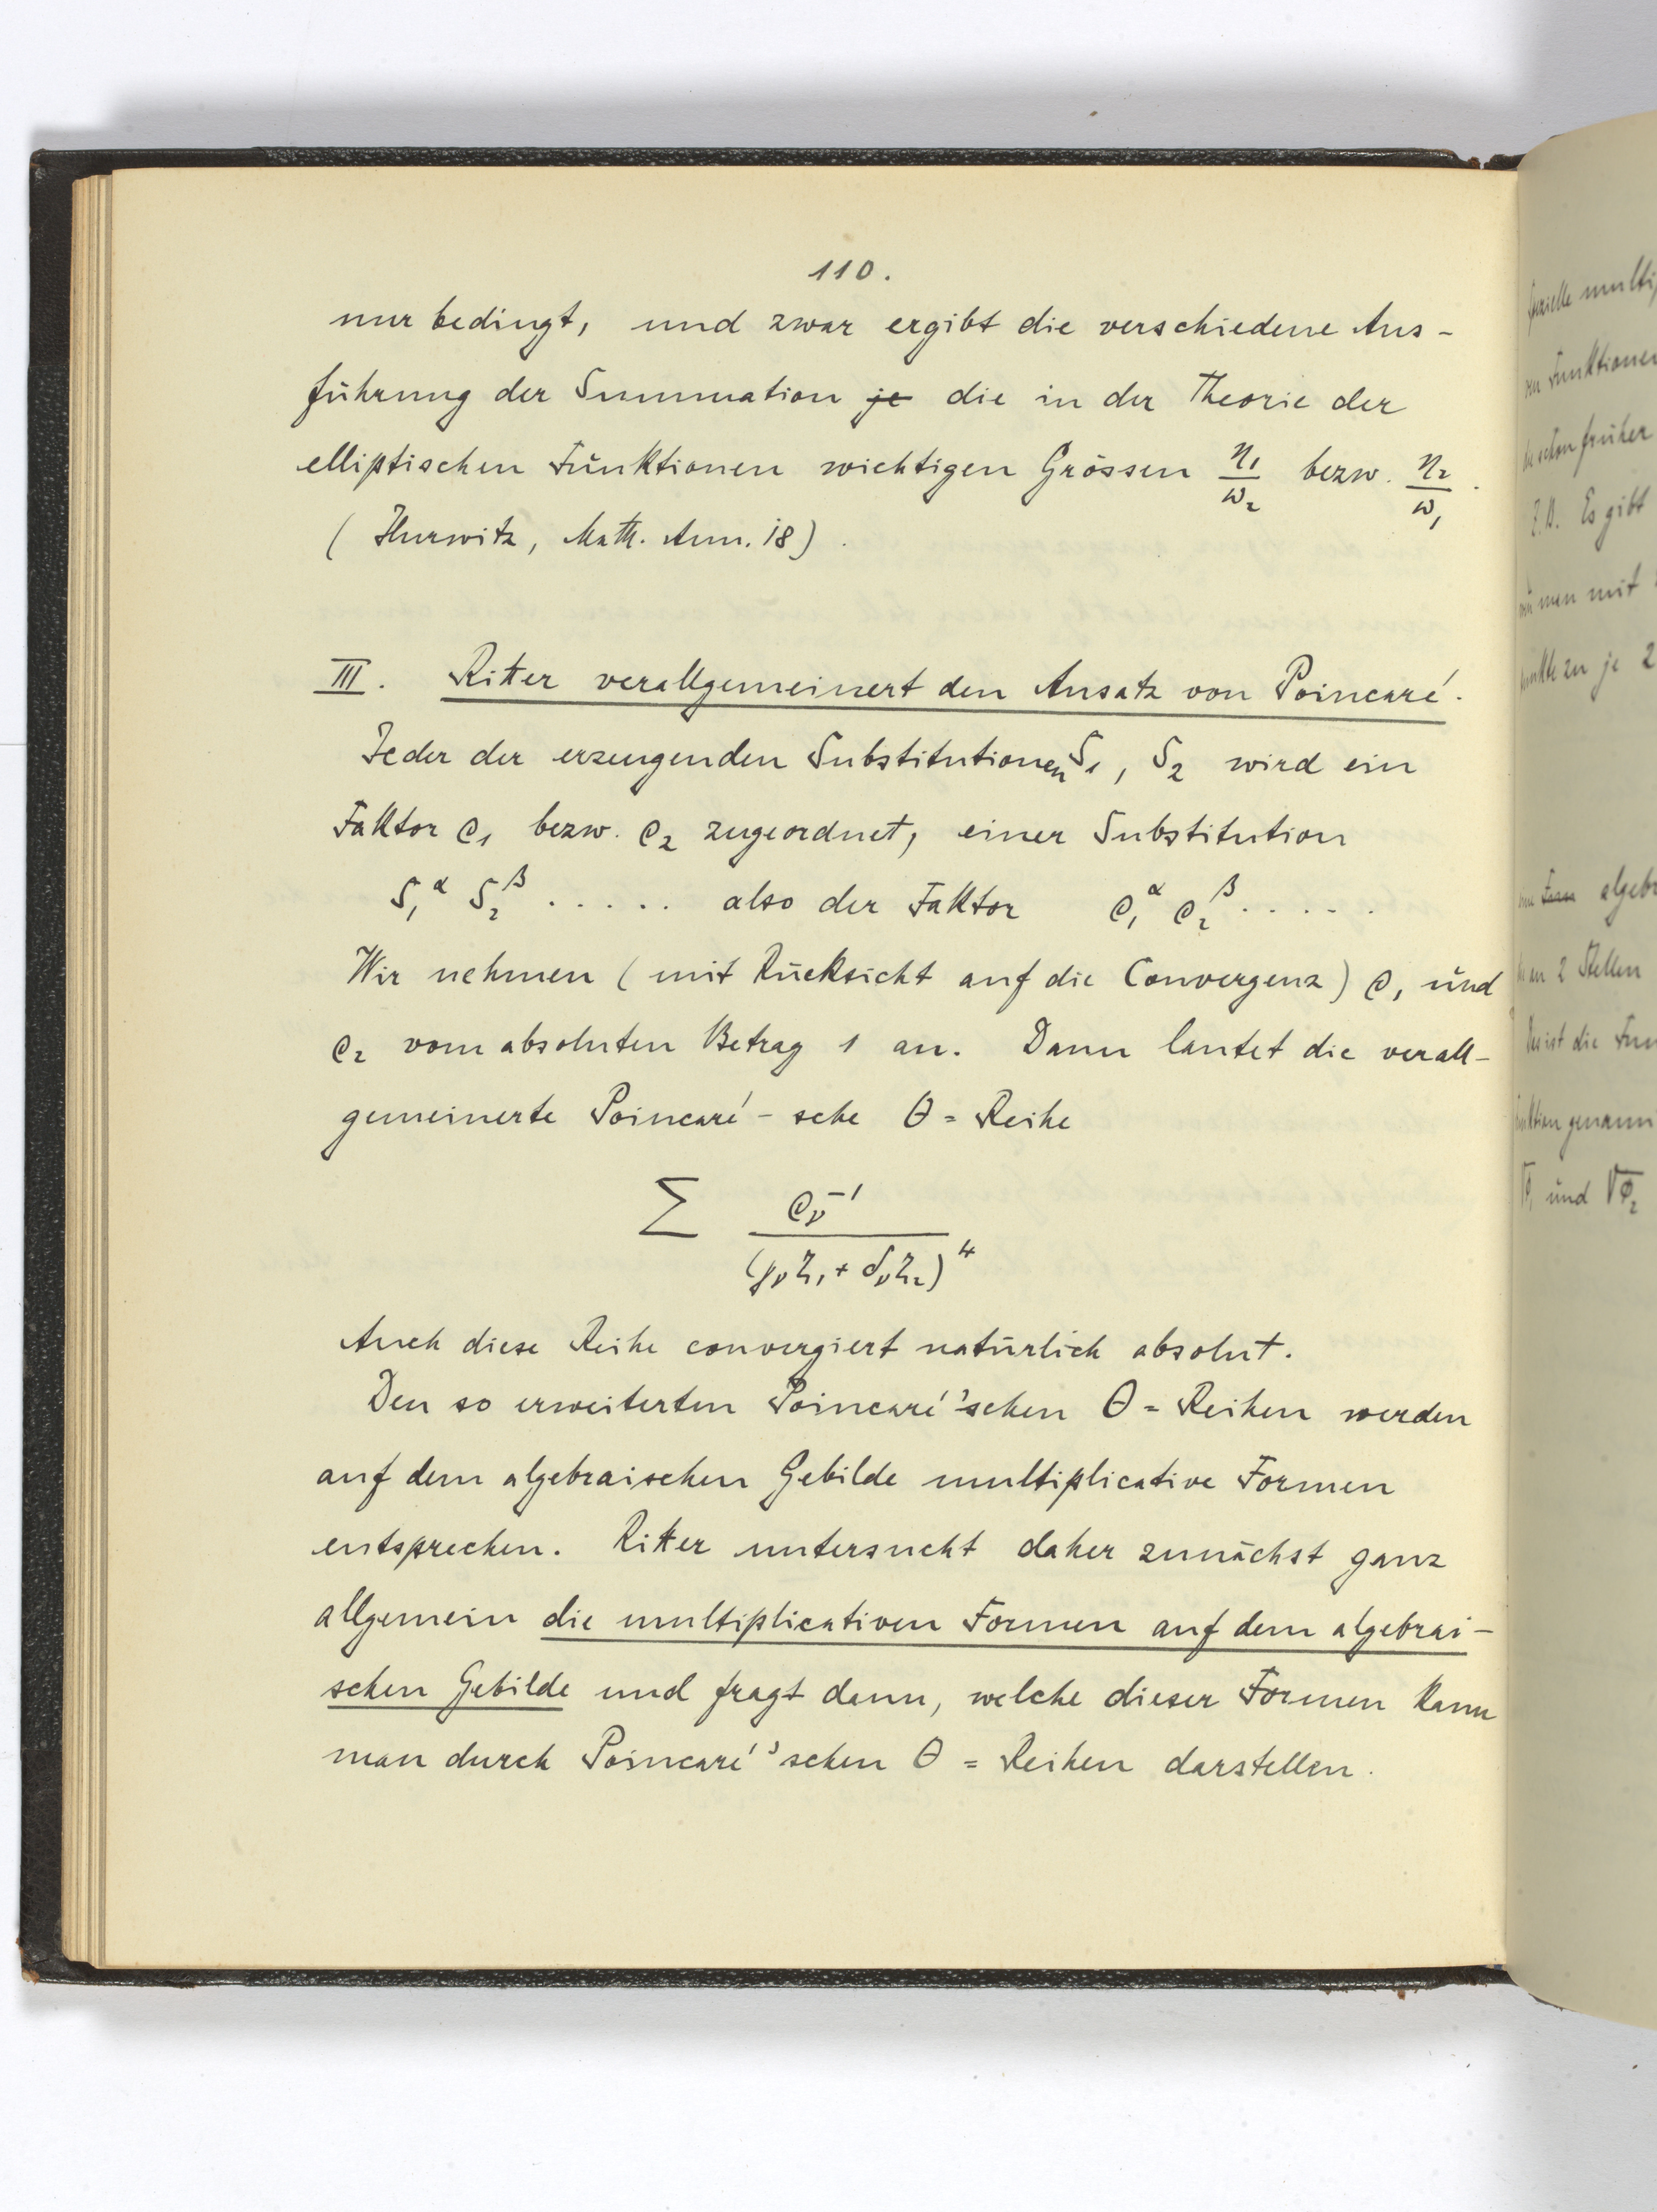 110.
nur bedingt, und zwar ergibt die verschiedene Aus-
führung der Summation ~~je~~ die in der Theorie der
elliptischen Funktionen wichtigen Grössen η₁/ω₂ bezw. η₂/ω₁.
(Hurwitz, Math. Ann. 18).
III. Ritter verallgemeinert den Ansatz von Poincaré.
Jeder der erzeugenden Substitutionen S₁, S₂ wird ein
Faktor ϱ₁ bezw. ϱ₂ zugeordnet, einer Substitution
S₁^α S₂^β ..... also der Faktor ϱ₁^α ϱ₂^β .....
Wir nehmen (mit Rücksicht auf die Convergenz) ϱ₁ und
ϱ₂ vom absoluten Betrag 1 an. Dann lautet die verall-
gemeinerte Poincaré-sche Θ = Reihe
∑ ϱ_ν^-1 / (γ_ν z₁ + δ_ν z₂)^4
Auch diese Reihe convergiert natürlich absolut.
Den so erweiterten Poincaré'schen Θ = Reihen werden
auf dem algebraischen Gebilde multiplicative Formen
entsprechen. Ritter untersucht daher zunächst ganz
allgemein die multiplicativen Formen auf dem algebrai-
schen Gebilde und fragt dann, welche dieser Formen kann
man durch Poincaré'schen Θ = Reihen darstellen.
multi
Funktionen
schon früher
Z.B. Es gibt
men mit
zu je 2
algebr
an 2 Stellen
ist die Fun
genann
und √Φ₂